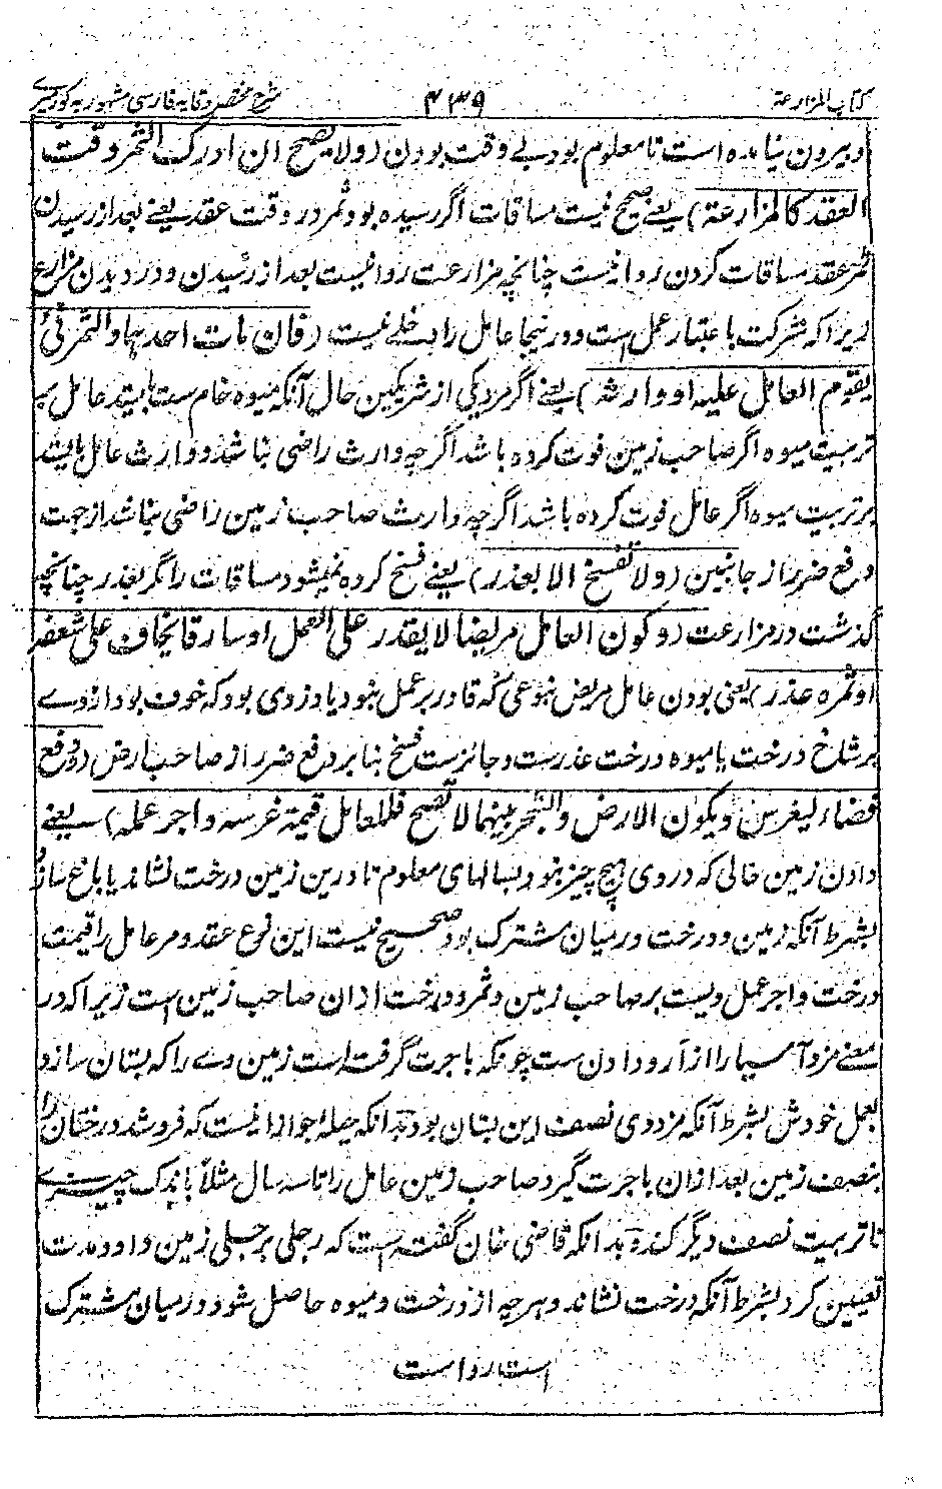 کتاب المزارعة ۴۳۹ شرح مختصر وقایه فارسی مشهور به کورمیری
و بیرون نیامده است تا معلوم بود بے وقت بودن (ولا یصح ان ادرک الثمر وقت
العقد کالمزارعة) یعنے صحیح نیست مساقات اگر رسیده بود ثمر در وقت عقد یعنے بعد از رسیدن
ثمر عقد مساقات کردن روا نیست چنانچه مزارعت روا نیست بعد از رسیدن و درویدن مزارع
زیرا که شرکت باعتبار عمل است و درینجا عامل را دخلے نیست (فان مات احدهما والثمر نیٔ
یقوم العامل علیه او وارثه) یعنے اگر مرد یکی از شریکین حال آنکه میوه خام ست بایستد عامل بر
تربیت میوه اگر صاحب زمین فوت کرده باشد اگرچه وارث راضی نباشد و وارث عامل بایستد
بر تربیت میوه اگر عامل فوت کرده باشد اگرچه وارث صاحب زمین راضی نباشد از جهت
دفع ضرر از جانبین (ولا تفسخ الا بعذر) یعنے فسخ کرده نمیشود مساقات را مگر بعذر چنانچه
گذشت در مزارعت (و کون العامل مریضا لا یقدر علی العمل او سارقا یخاف علی سعفه
او ثمره عذر) یعنی بودن عامل مریض بنوعی که قادر بر عمل نبود یا دزدی بود که خوف بود از وے
بر شاخ درخت یا میوه درخت عذرست و جائزست فسخ بنا بر دفع ضرر از صاحب ارض (و دفع
فضاء لیغرس و یکون الارض والشجر بینهما لا تصح فللعامل قیمة غرسه واجر عمله) یعنے
دادن زمین خالی که در وی هیچ چیز نبود بسالهای معلوم تا درین زمین درخت نشاند یا باغ سازد
بشرط آنکه زمین و درخت درمیان مشترک بود صحیح نیست این نوع عقد و مر عامل را قیمت
درخت و اجر عمل ویست بر صاحب زمین و ثمر و درخت ازان صاحب زمین است زیرا که در
معنے مزد آسیا را از آرد دادن ست چونکه باجرت گرفته است زمین وے را که بستان سازد
بعمل خودش بشرط آنکه مزد وی نصف این بستان بود بدانکه حیله جواز اینست که فروشد درختان را
بنصف زمین بعد ازان باجرت گیرد صاحب زمین عامل را تا سه سال مثلاً باندک چیزے
تا تربیت نصف دیگر کند و بدانکه قاضی خان گفته است که رجلی بر جلی زمین داد و مدت
تعیین کرد بشرط آنکه درخت نشاند و هرچه از درخت و میوه حاصل شود درمیان مشترک
است روا است